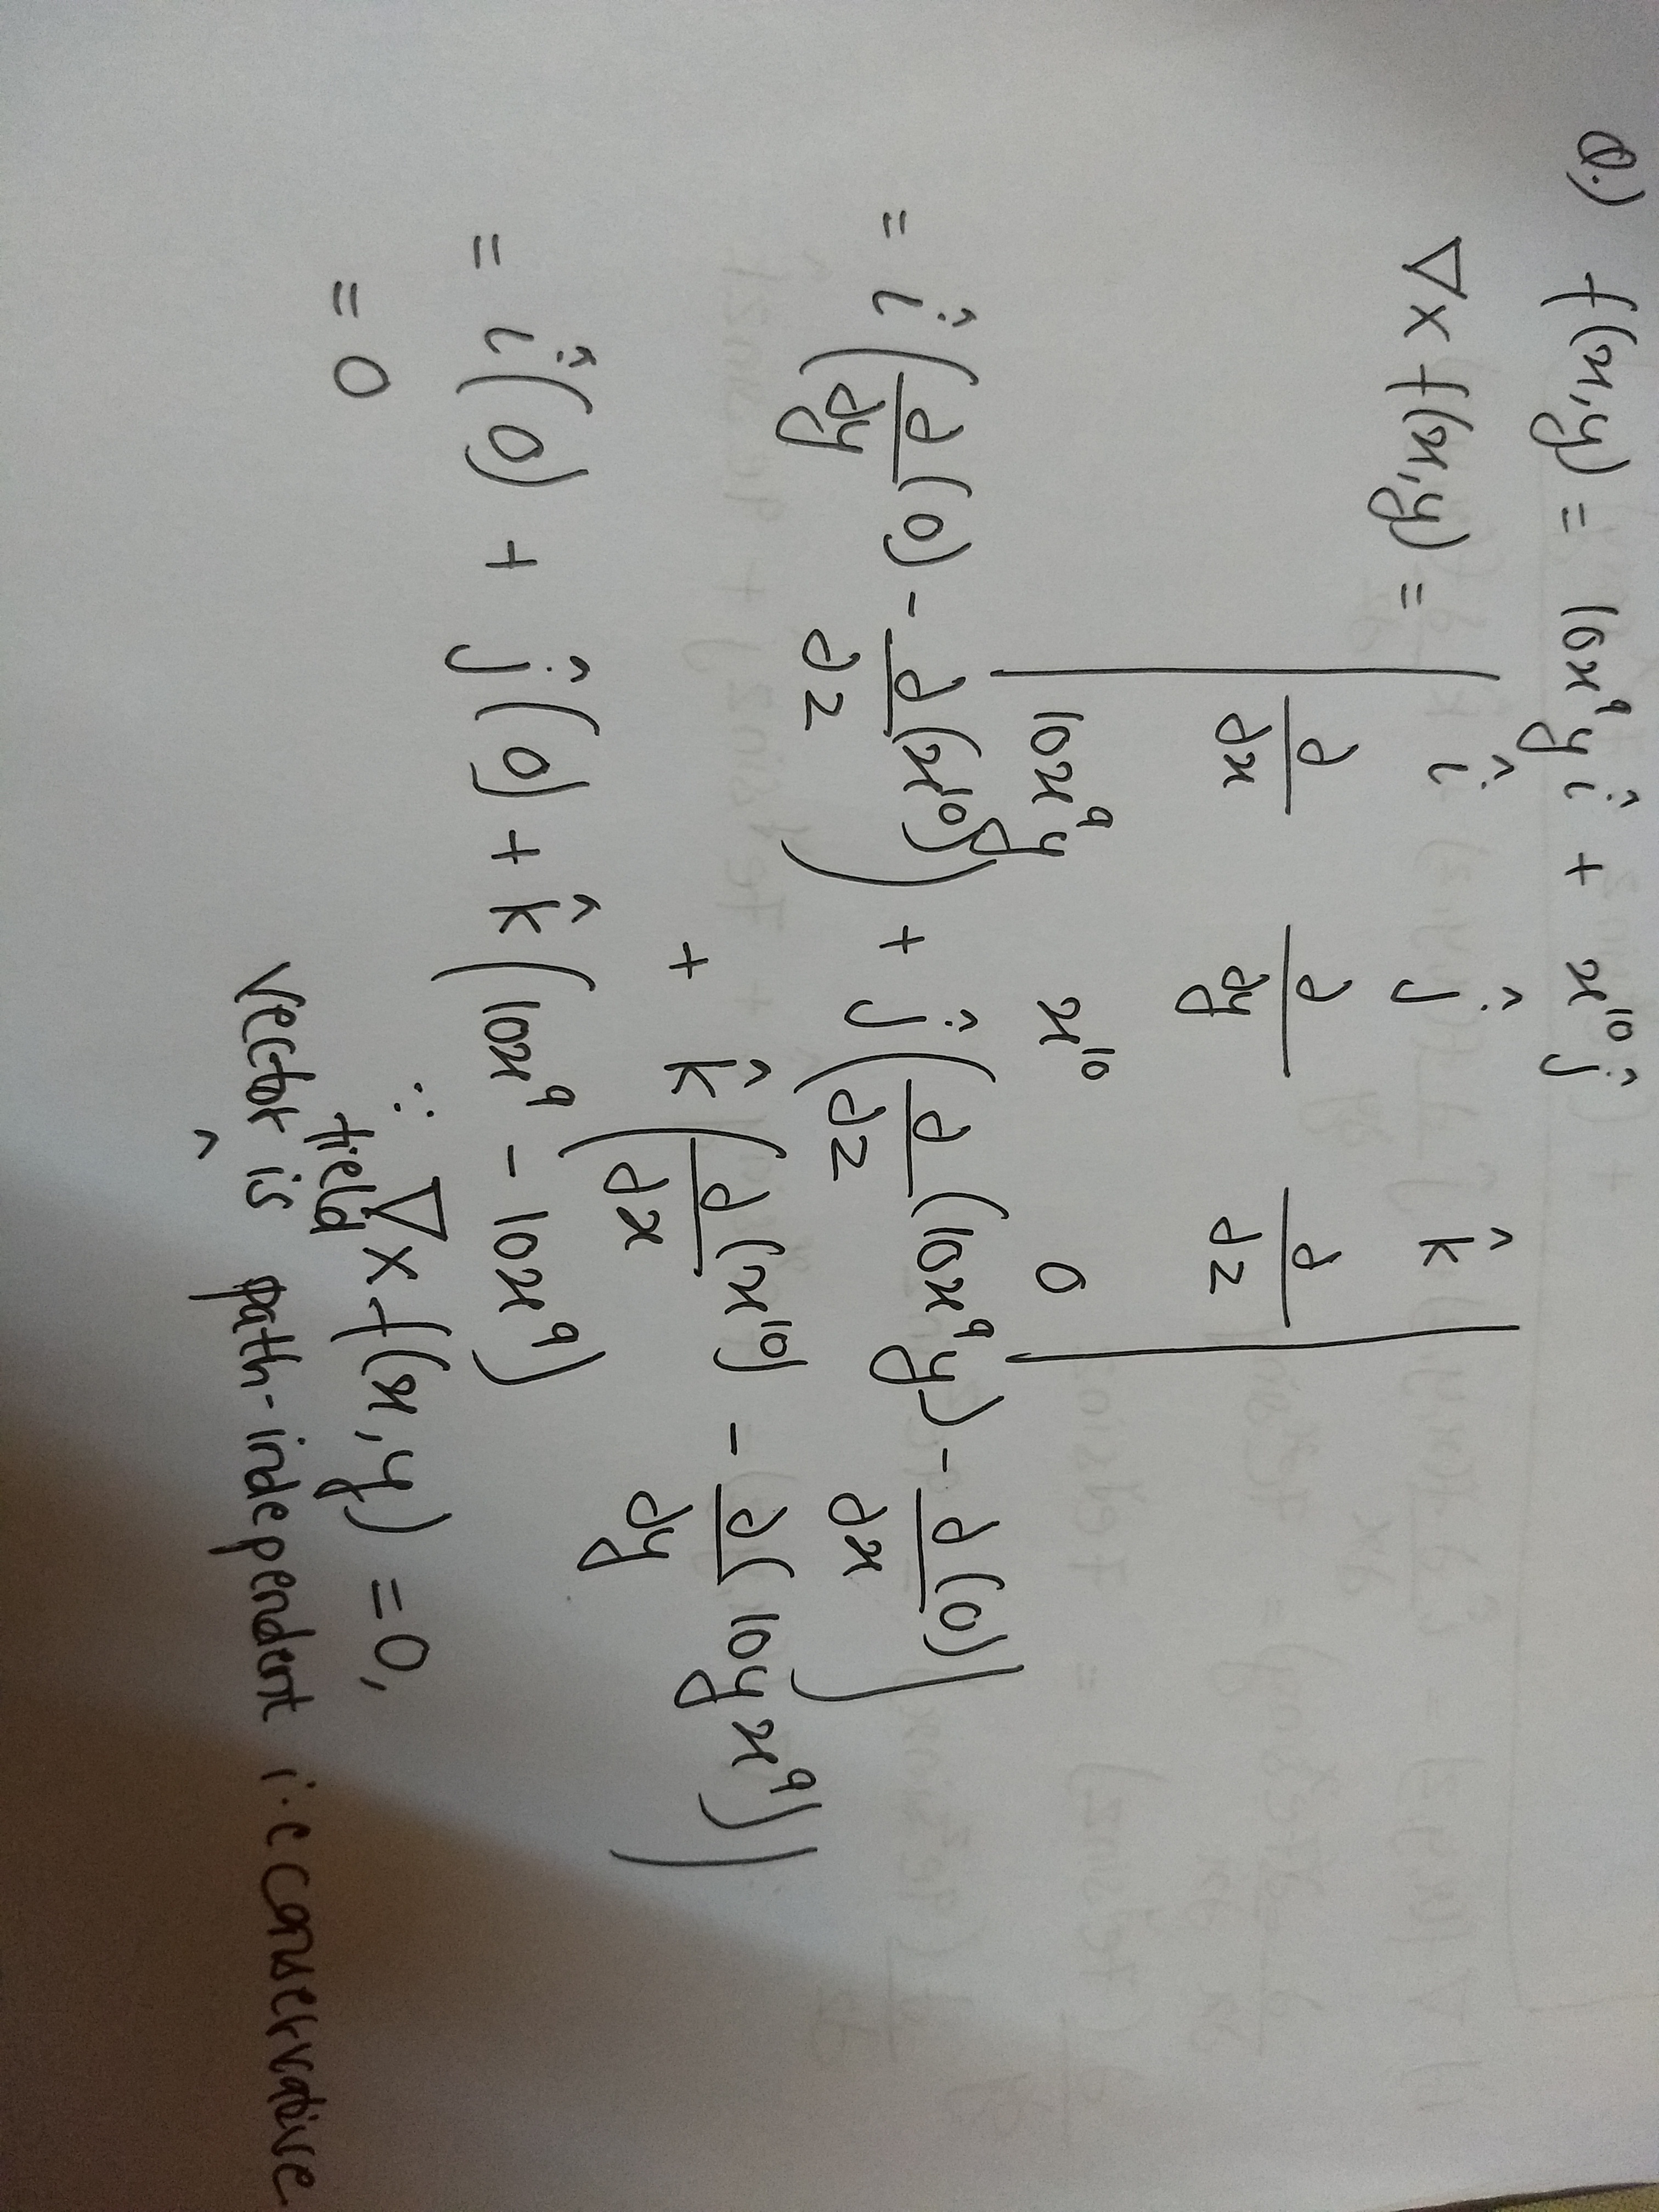 Q.) f(x,y) = 10x⁹y î + x¹⁰ ĵ
∇ × f(x,y) = | î ĵ k̂ |
∂/∂x ∂/∂y ∂/∂z
10x⁹y x¹⁰ 0
= î (∂/∂y (0) - ∂/∂z (x¹⁰)) + ĵ (∂/∂z (10x⁹y) - ∂/∂x (0))
+ k̂ (∂/∂x (x¹⁰) - ∂/∂y (10y x⁹))
= î (0) + ĵ (0) + k̂ (10x⁹ - 10x⁹)
= 0
∴ ∇ × f(x,y) = 0,
vector field is path-independent i.e conservative